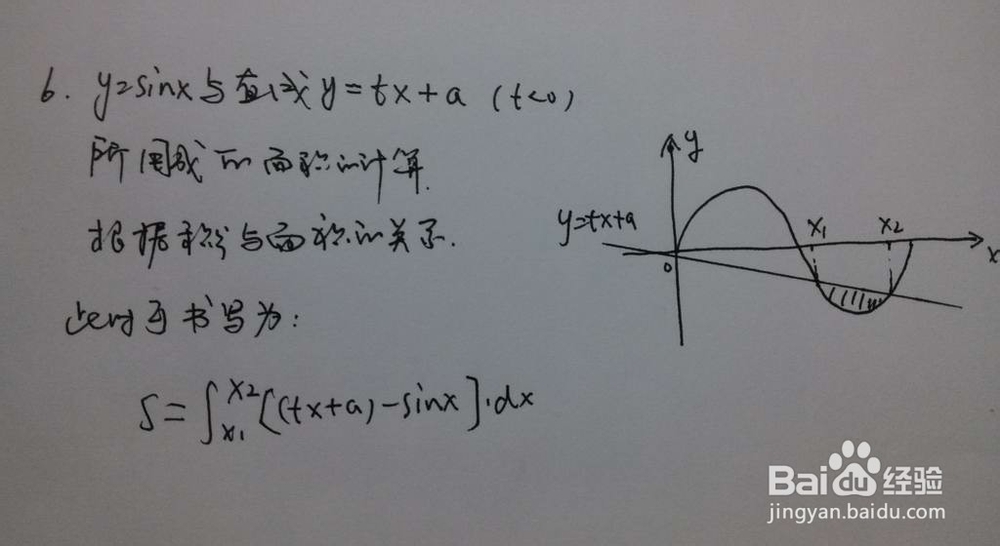 6. y=sinx与直线y=tx+a (t<0)
所围成的面积的计算.
根据积分与面积的关系.
此时可书写为:
S=∫x₁x₂[(tx+a)-sinx]·dx
y
y=tx+a
x₁ x₂
0
x
Baidu经验
jingyan.baidu.com